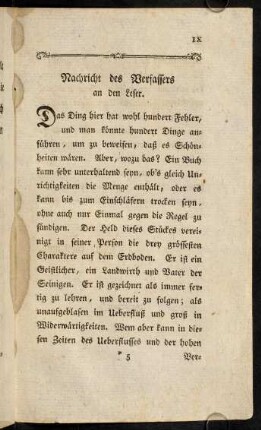 IX
Nachricht des Verfassers
an den Leser.
Das Ding hier hat wohl hundert Fehler,
und man könnte hundert Dinge an-
führen, um zu beweisen, daß es Schön-
heiten wären. Aber, wozu das? Ein Buch
kann sehr unterhaltend seyn, ob's gleich Un-
richtigkeiten die Menge enthält, oder es
kann bis zum Einschläfern trocken seyn,
ohne auch nur Einmal gegen die Regel zu
sündigen. Der Held dieses Stückes verei-
nigt in seiner Person die drey grössesten
Charaktere auf dem Erdboden. Er ist ein
Geistlicher, ein Landwirth und Vater der
Seinigen. Er ist gezeichnet als immer fer-
tig zu lehren, und bereit zu folgen; als
unaufgeblasen im Ueberfluß und groß in
Widerwärtigkeiten. Wem aber kann in die-
sen Zeiten des Ueberflusses und der hohen
* 5 Ver-